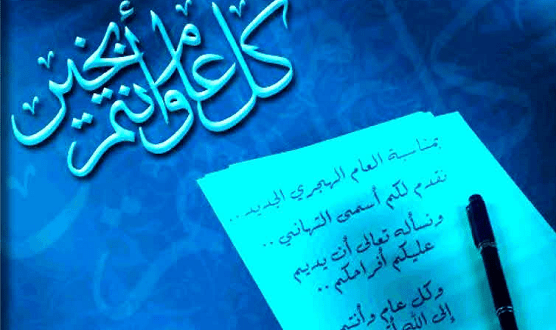 كل عام وأنتم بخير
بمناسبة العام الهجري الجديد ..
نقدم لكم أسمى التهاني ..
ونسأله تعالى أن يديم
عليكم أفراحكم ..
وكل عام وأنتم
إلى الله